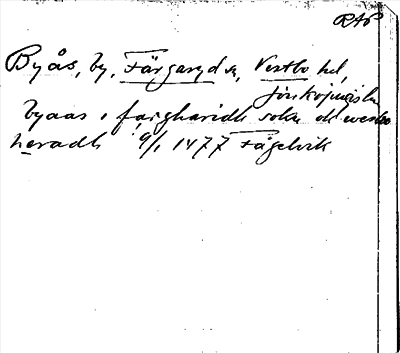 RAP
Byås, by, Färgaryd sn, Vestbo hd,
Jönköpings län
byaas i færgharidh sokn oc westbo
heradh 9/1 1477 Fågelvik